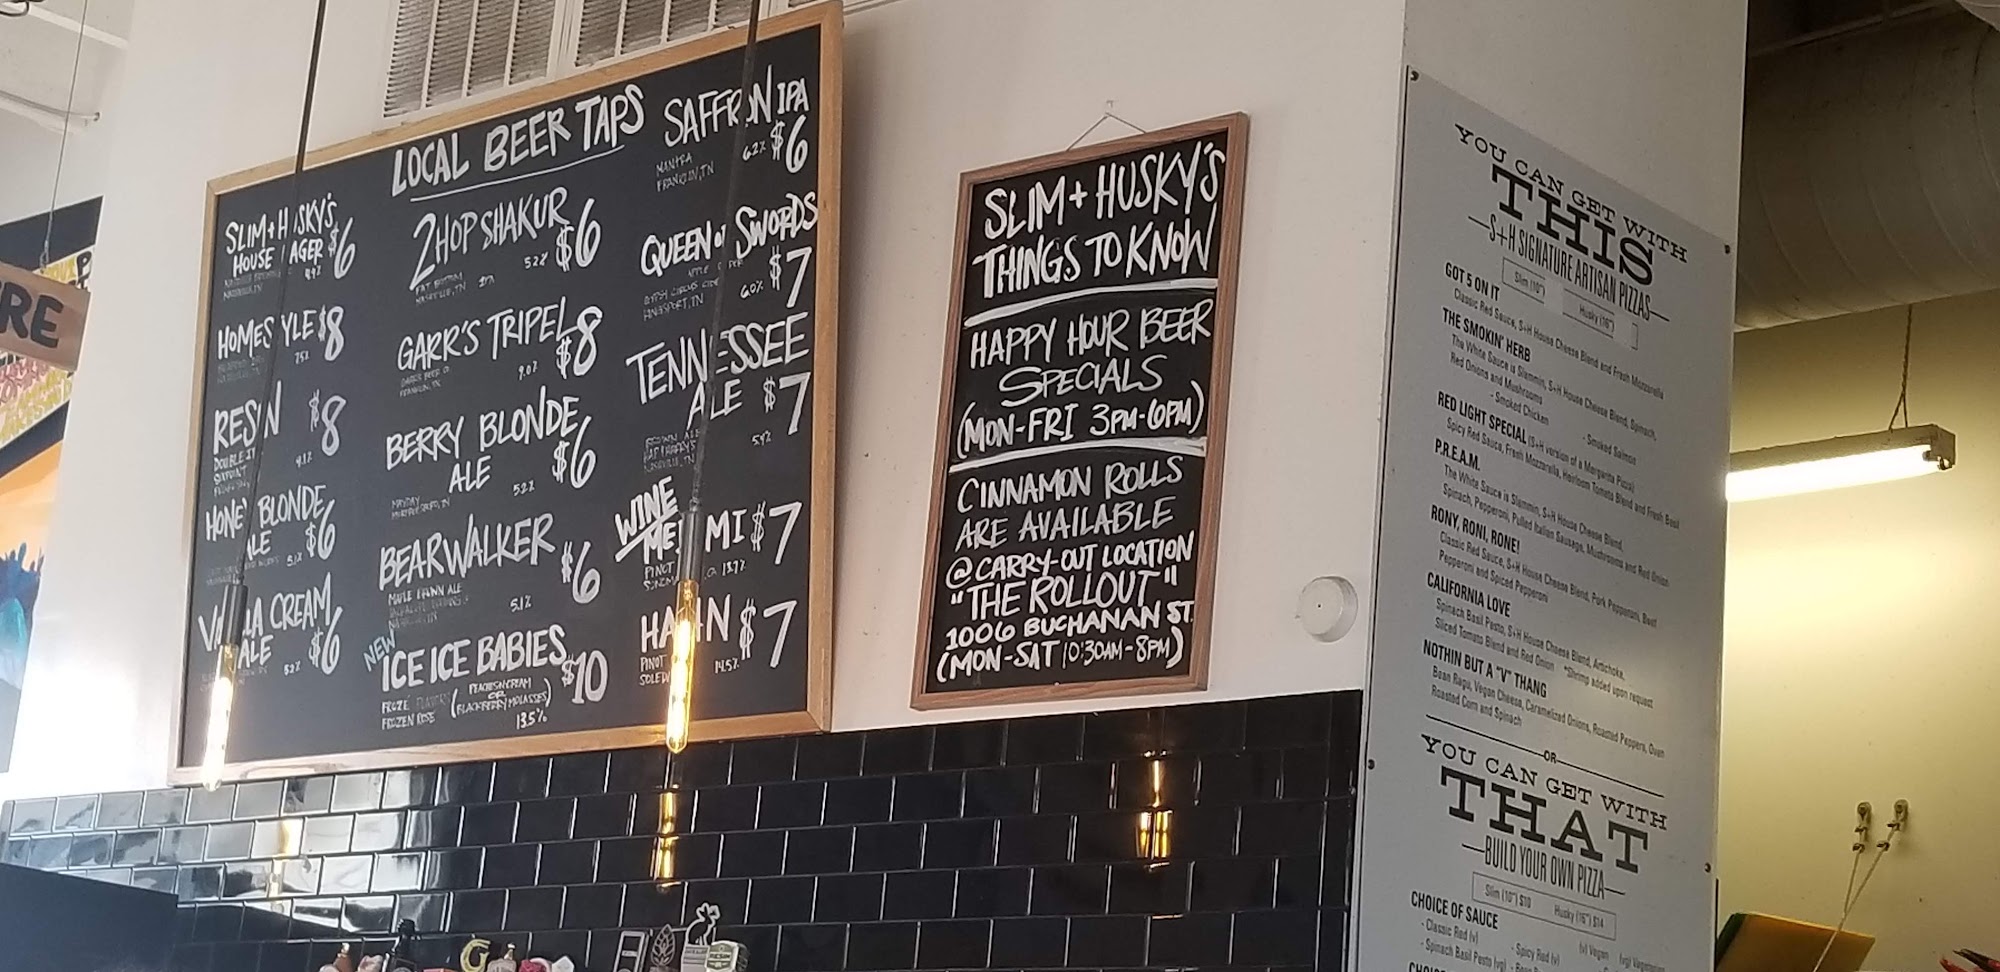 RE
LOCAL BEER TAPS
SLIM + HUSKY'S
HOUSE LAGER $6
NASHVILLE, TN
HOMESTYLE $8
RESIN $8
HONEY BLONDE
ALE $6
5.1%
VANILLA CREAM
ALE $6
2HOP SHAKUR $6
5.2%
FAT BOTTOM
NASHVILLE, TN
GARR'S TRIPEL $8
9.0%
GARR'S BEER CO
FRANKLIN, TN
BERRY BLONDE
ALE $6
5.2%
MAYDAY
MURFREESBORO, TN
BEARWALKER $6
MAPLE BROWN ALE
5.1%
NEW
ICE ICE BABIES $10
FROZÉ FLAVORS
FROZEN ROSE
(PEACHES N CREAM
OR
BLACKBERRY MOLASSES)
13.5%
SAFFRON IPA
$6
6.2%
MANTRA
FRANKLIN, TN
QUEEN OF SWORDS
$7
6.0%
GYPSY CIRCUS CIDER
KINGSPORT, TN
TENNESSEE
ALE $7
BROWN ALE
YAZOO
NASHVILLE, TN
WINE
MI $7
PINOT
13.7%
HAHN $7
PINOT
14.5%
SLIM + HUSKY'S
THINGS TO KNOW
HAPPY HOUR BEER
SPECIALS
(MON-FRI 3PM-6PM)
CINNAMON ROLLS
ARE AVAILABLE
@ CARRY-OUT LOCATION
"THE ROLLOUT"
1006 BUCHANAN ST.
(MON-SAT 10:30AM-8PM)
YOU CAN GET WITH
THIS
S+H SIGNATURE ARTISAN PIZZAS
Slim (10") Husky (16")
GOT 5 ON IT
Classic Red Sauce, S+H House Cheese Blend and Fresh Mozzarella
THE SMOKIN' HERB
The White Sauce is Slammin, S+H House Cheese Blend, Spinach,
Red Onions and Mushrooms
- Smoked Chicken - Smoked Salmon
RED LIGHT SPECIAL (S+H version of a Margarita Pizza)
Spicy Red Sauce, Fresh Mozzarella, Heirloom Tomato Blend and Fresh Basil
P.R.E.A.M.
The White Sauce is Slammin, S+H House Cheese Blend,
Spinach, Pepperoni, Pulled Italian Sausage, Mushrooms and Red Onion
RONY, RONI, RONE!
Classic Red Sauce, S+H House Cheese Blend, Pork Pepperoni, Beef
Pepperoni and Spiced Pepperoni
CALIFORNIA LOVE
Spinach Basil Pesto, S+H House Cheese Blend, Artichoke,
Sliced Tomato Blend and Red Onion *Shrimp added upon request
NOTHIN BUT A "V" THANG
Bean Ragu, Vegan Cheese, Caramelized Onions, Roasted Peppers, Oven
Roasted Corn and Spinach
OR
YOU CAN GET WITH
THAT
BUILD YOUR OWN PIZZA
Slim (10") $10 Husky (16") $14
(v) Vegan (vg) Vegetarian
CHOICE OF SAUCE
- Classic Red (v) - Spicy Red (v)
- Spinach Basil Pesto (vg)